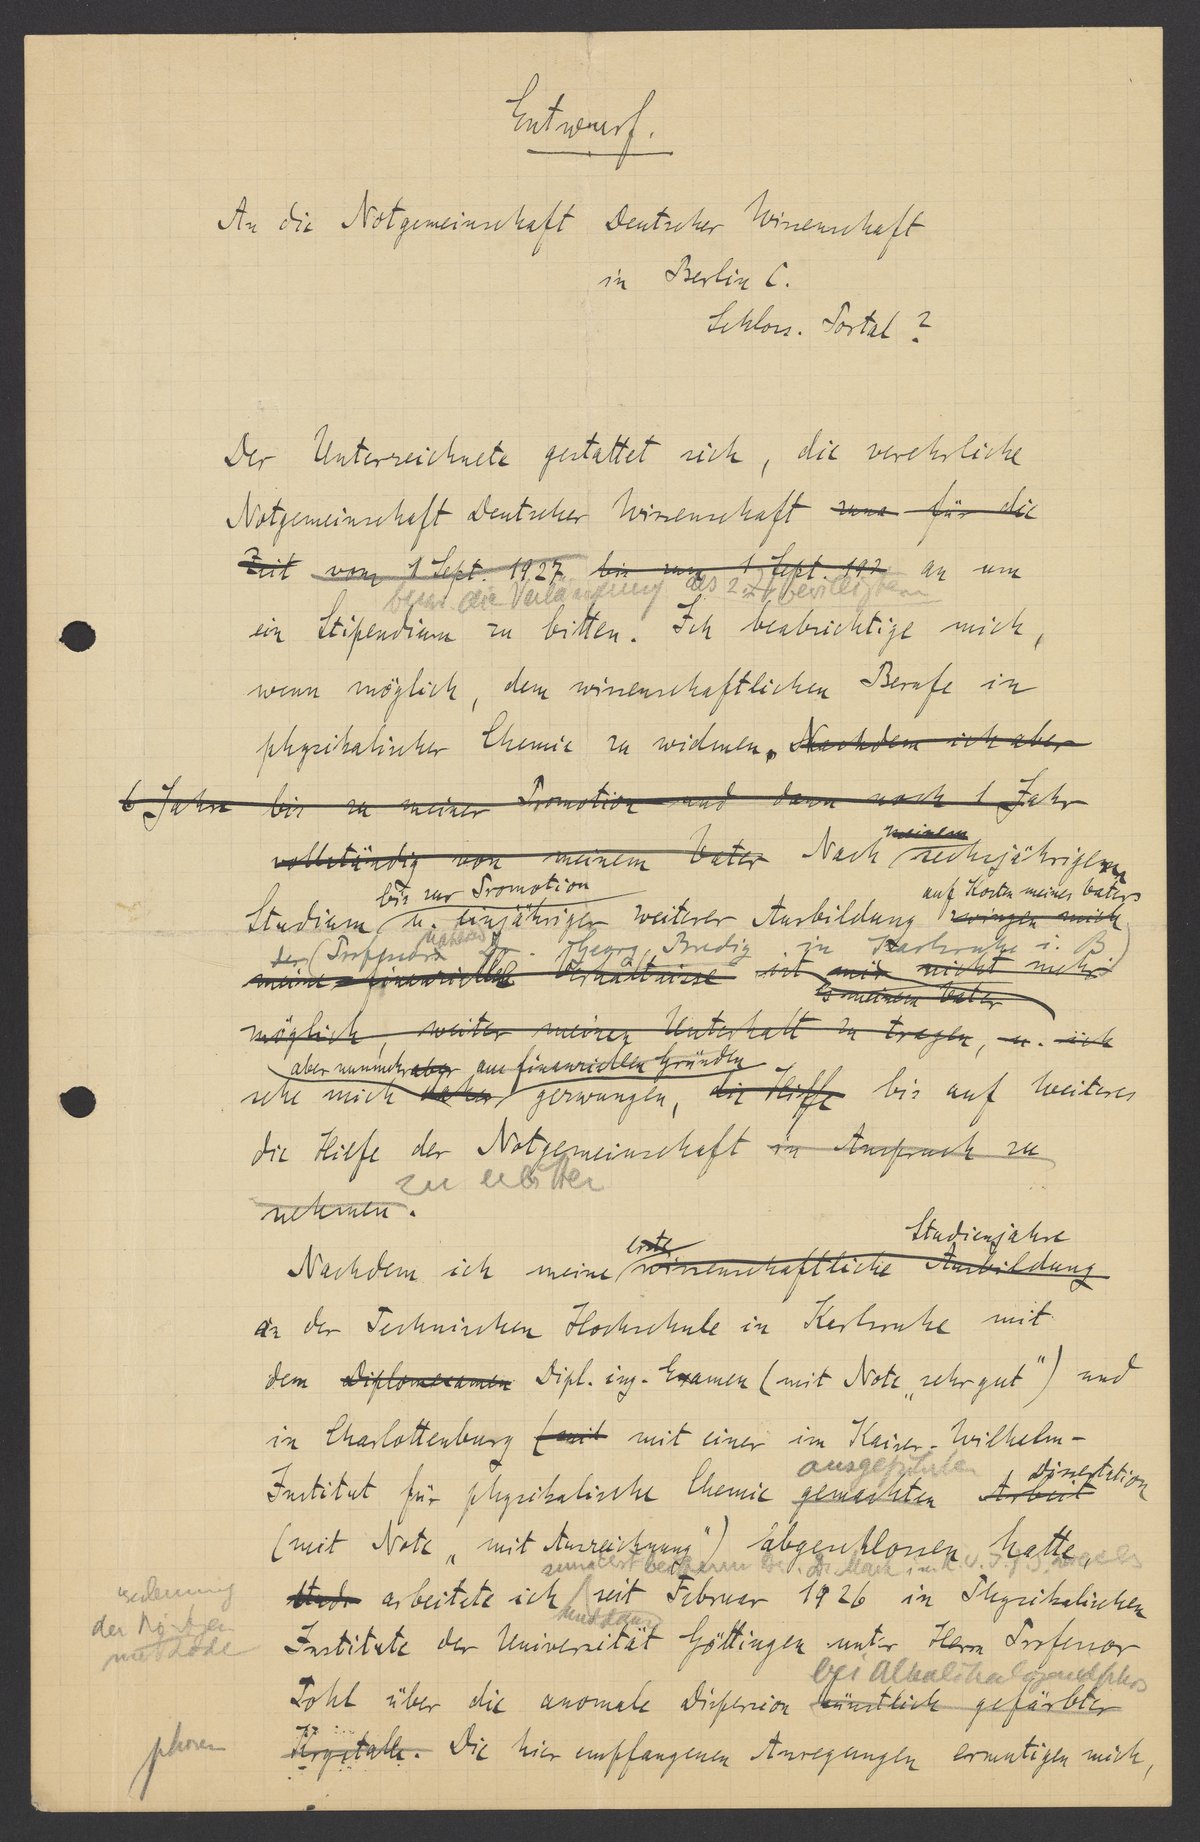 Entwurf.
An die Notgemeinschaft Deutscher Wissenschaft
in Berlin C.
Schloss. Portal ?
Der Unterzeichnete gestattet sich, die verehrliche
Notgemeinschaft Deutscher Wissenschaft für die
Zeit vom 1 Sept. 1927 bis zum 1 Sept. 192 an um
die Verlängerung des z. Zt bewilligten
ein Stipendium zu bitten. Ich beabsichtige mich,
wenn möglich, dem wissenschaftlichen Berufe in
physikalischer Chemie zu widmen. Nachdem ich aber
6 Jahre bis zu meiner Promotion und dann noch 1 Jahr
meinem
vollständig von meinem Vater Nach sechsjährigem
bis zur Promotion auf Kosten meines Vaters
Studium u. einjähriger weiterer Ausbildung zwingen mich
der (Professors Dr. Georg Bredig in Karlsruhe i. B)
meine finanziellen Verhältnisse ist mir nicht mehr
es meinem Vater
möglich, weiter meinen Unterhalt zu tragen, u. ich
aber nunmehr aber aus finanziellen Gründen
sehe mich daher gezwungen, die Hilfe bis auf Weiteres
die Hilfe der Notgemeinschaft in Anspruch zu
zu erbitten
nehmen.
erste Studienjahre
Nachdem ich meine wissenschaftliche Ausbildung
an der Technischen Hochschule in Karlsruhe mit
dem Diplomexamen Dipl. ing. Examen (mit Note „sehr gut") und
in Charlottenburg (mit mit einer im Kaiser-Wilhelm-
ausgeführten Dissertation
Institut für physikalische Chemie gemachten Arbeit
(mit Note „mit Auszeichnung") abgeschlossen hatte,
arbeitete ich seit Februar 1926 im Physikalischen
und dann
der
methode
Institute der Universität Göttingen unter Herrn Professor
bei Alkalihalogenidphos
Pohl über die anomale Dispersion künstlich gefärbter
phoren
Krystalle. Die hier empfangenen Anregungen ermutigen mich,